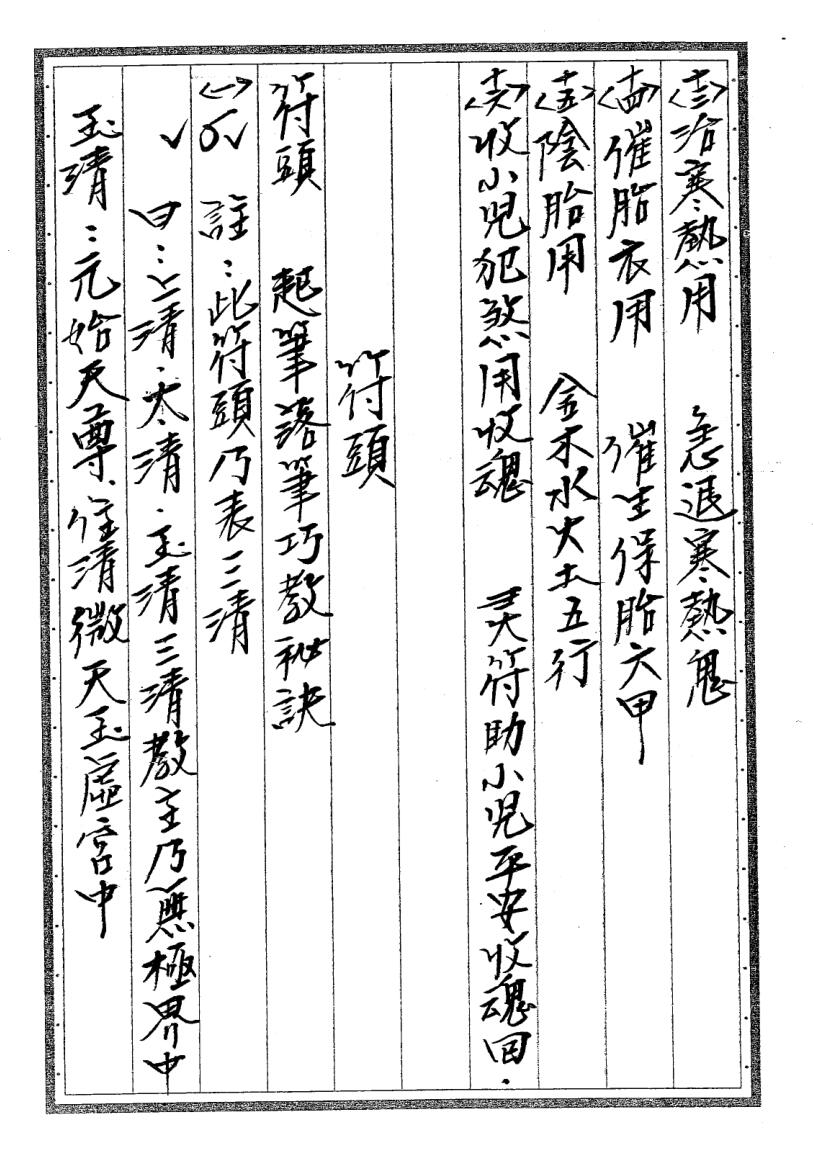 〈十三〉治寒熱用　急退寒熱鬼
〈十四〉催胎衣用　催生保胎六甲
〈十五〉陰胎用　金木水火土五行
〈十六〉收小児犯煞用收魂　灵符助小児平安收魂回.
符頭
符頭　起筆落筆巧教秘訣
〈一〉　註:此符頭乃表三清
曰:上清.太清.玉清三清教主乃無極界中
玉清:元始天尊.住清微天玉虛宮中